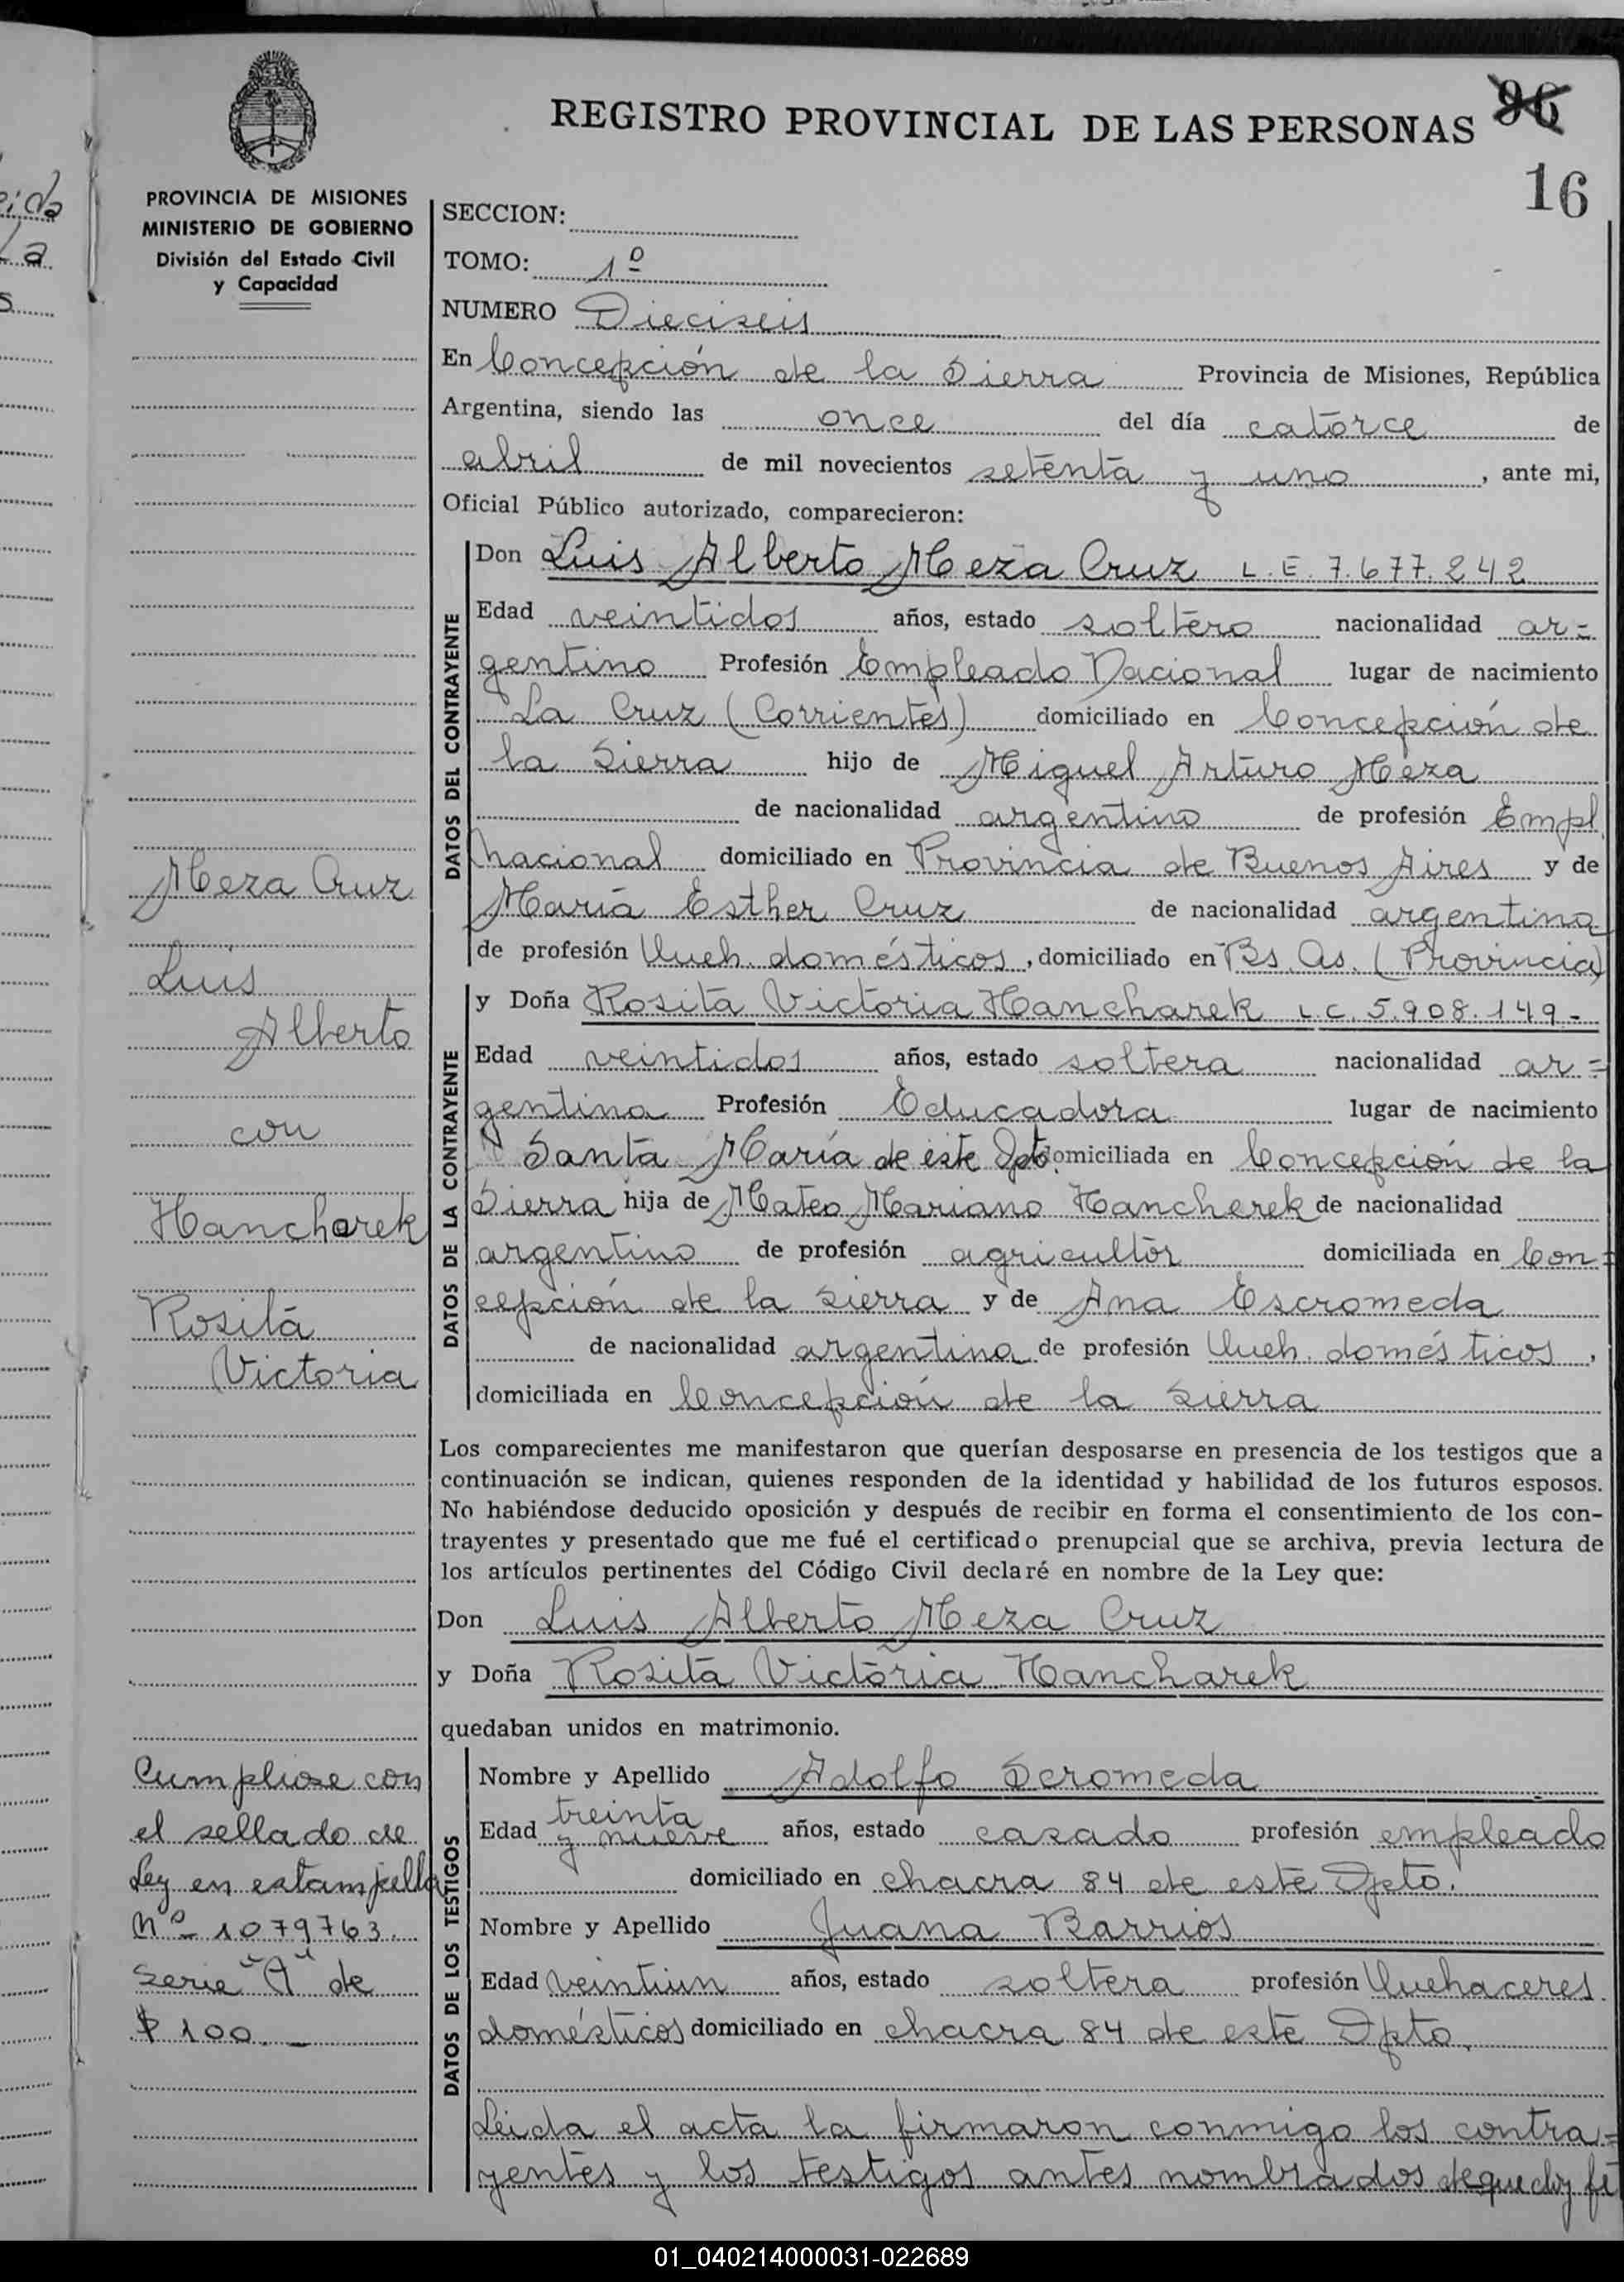 REGISTRO PROVINCIAL DE LAS PERSONAS
96
16
PROVINCIA DE MISIONES
MINISTERIO DE GOBIERNO
División del Estado Civil
y Capacidad
SECCION:
TOMO: 1º
NUMERO Dieciseis
En Concepción de la Sierra Provincia de Misiones, República
Argentina, siendo las once del día catorce de
abril de mil novecientos setenta y uno, ante mi,
Oficial Público autorizado, comparecieron:
DATOS DEL CONTRAYENTE
Don Luis Alberto Meza Cruz L.E. 7.677.242
Edad veintidos años, estado soltero nacionalidad ar=
gentino Profesión Empleado Nacional lugar de nacimiento
La Cruz (Corrientes) domiciliado en Concepción de
la Sierra hijo de Miguel Arturo Meza
de nacionalidad argentino de profesión Empl.
nacional domiciliado en Provincia de Buenos Aires y de
María Esther Cruz de nacionalidad argentina
de profesión Queh. domésticos, domiciliado en Bs. As. (Provincia)
DATOS DE LA CONTRAYENTE
y Doña Rosita Victoria Hancharek L.C. 5.908.149-
Edad veintidos años, estado soltera nacionalidad ar=
gentina Profesión Educadora lugar de nacimiento
Santa María de este Dpto. domiciliada en Concepción de la
Sierra hija de Mateo Mariano Hancherek de nacionalidad
argentino de profesión agricultor domiciliada en Con=
cepción de la Sierra y de Ana Escromeda
de nacionalidad argentina de profesión Queh. domésticos,
domiciliada en Concepción de la Sierra
Los comparecientes me manifestaron que querían desposarse en presencia de los testigos que a
continuación se indican, quienes responden de la identidad y habilidad de los futuros esposos.
No habiéndose deducido oposición y después de recibir en forma el consentimiento de los con-
trayentes y presentado que me fué el certificado prenupcial que se archiva, previa lectura de
los artículos pertinentes del Código Civil declaré en nombre de la Ley que:
Don Luis Alberto Meza Cruz
y Doña Rosita Victoria Hancharek
quedaban unidos en matrimonio.
DATOS DE LOS TESTIGOS
Nombre y Apellido Adolfo Scromeda
Edad treinta y nueve años, estado casado profesión empleado
domiciliado en chacra 84 de este Dpto.
Nombre y Apellido Juana Barrios
Edad veintiun años, estado soltera profesión Quehaceres
domésticos domiciliado en chacra 84 de este Dpto.
Leida el acta la firmaron conmigo los contra=
yentes y los testigos antes nombrados de que doy fé
Meza Cruz
Luis
Alberto
con
Hancharek
Rosita
Victoria
Cumpliose con
el sellado de
Ley en estampilla
Nº 1079763
Serie "A" de
$ 100.-
01_040214000031-022689